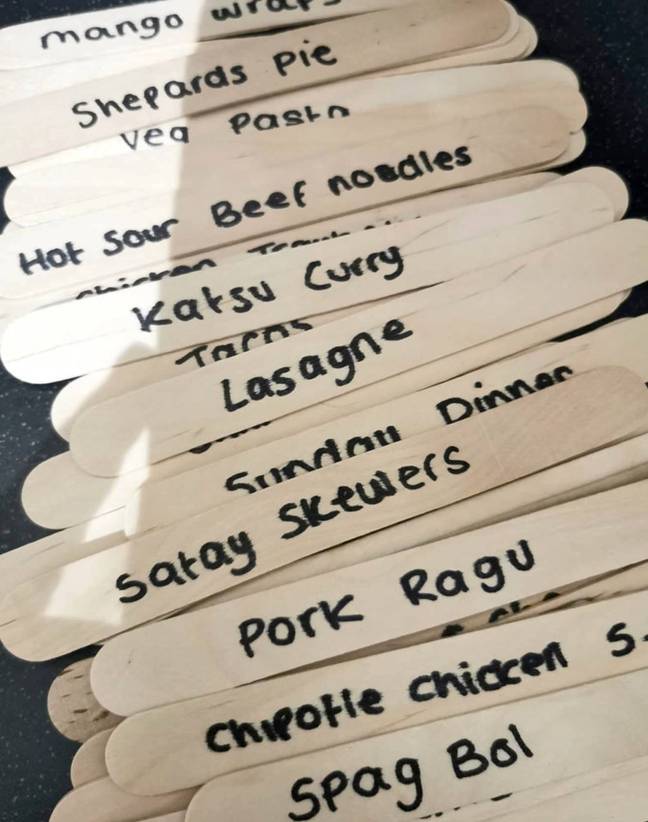 mango wraps
Shepards Pie
Veg Pasta
Hot Sour Beef noodles
Chicken
Katsu Curry
Tacos
Lasagne
Sunday Dinner
Satay Skewers
Pork Ragu
Chipotle chicken S
Spag Bol